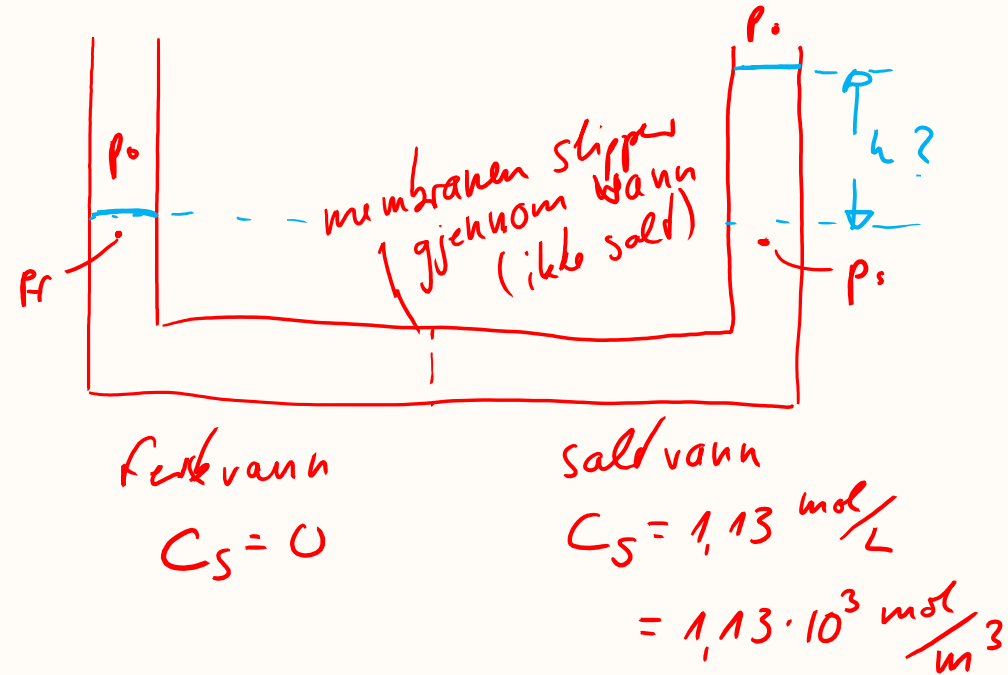 p₀
p₀
membranen slipper
gjennom vann
(ikke sald)
h ?
Pr
Ps
ferskvann
saldvann
C_S = 0
C_S = 1,13 mol/L
= 1,13 · 10³ mol/m³